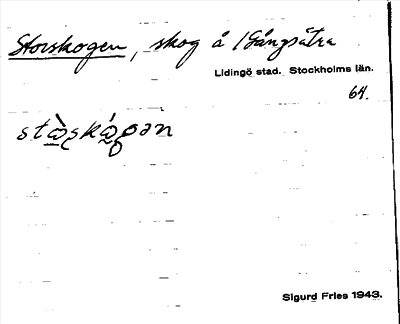 Storskogen, skog å Gångsätra
Lidingö stad. Stockholms län.
64.
Sigurd Fries 1943.